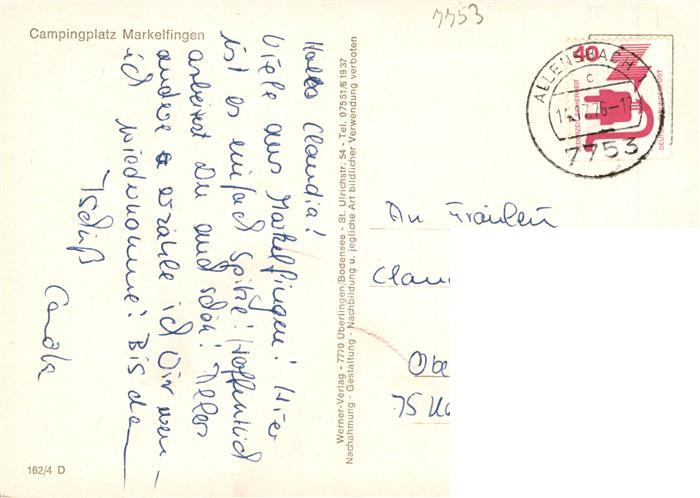 7753
Campingplatz Markelfingen
Hallo Claudia!
Viele aus Markelfingen! Hier
ist es einfach Spitze! Hoffentlich
arbeitest Du auch schön! Alles
andere erzähle ich Dir wenn
ich wiederkomme! Bis da
Tschüß
162/4 D
Werner-Verlag - 7770 Überlingen/Bodensee - St. Ulrichstr. 54 - Tel. 07551/61937
Nachahmung - Gestaltung - Nachbildung u. jegliche Art bildlicher Verwendung verboten
40
DEUTSCHE BUNDESPOST
ALLENSBACH
c
7753
An Fräulein
Clau
Obe
75 Ka